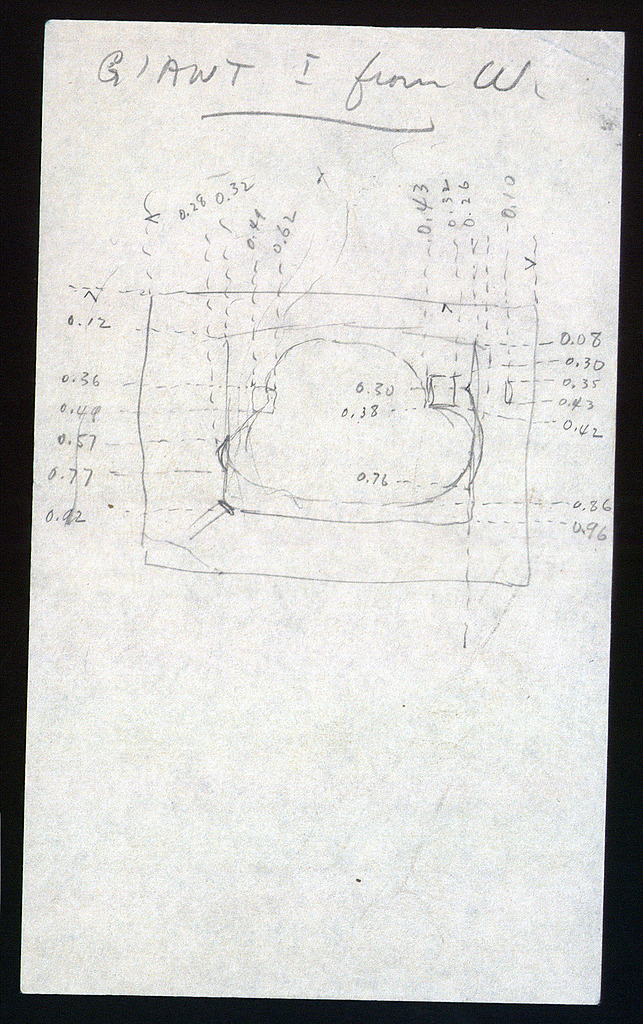 GIANT I from W.
0.28 0.32 0.49 0.62
0.43 0.32 0.26 0.10
0.12
0.08
0.30
0.36
0.30
0.35
0.49
0.38
0.43
0.42
0.57
0.77
0.76
0.86
0.92
0.96